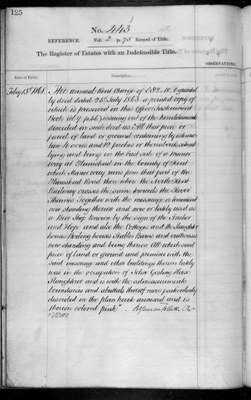 125
No. 443
REFERENCE. Vol. 2 to 78 Record of Title.
The Register of Estates with an Indefeasible Title.
OBSERVATIONS.
Date of Entry.
Description.
An annual Rent Charge of
by deed dated 28th July 1863 a printed copy of
which is preserved in this Office, Instrument
issuing out of the hereditaments
described in said deed as "All that piece or
parcel of land or ground containing by admeasure
ment acres and 10 perches or thereabouts
lying and being on the East side of a Manor
way at Plumstead in the County of Kent
which Manor way runs from that part of the
Plumstead Road there where the North Kent
Railway crosses the same towards the River
Thames Together with the messuage or tenement
now standing thereon and now or lately used as
a Beer Shop known by the sign of the Anchor
and Hope and also the Cottages and the Slaughter
houses Boiling houses Stables Barns and outhouses
now standing and being thereon All which said
piece of land or ground and premises with the
said messuage and other buildings thereon lately
was in the occupation of John Horse
Slaughterer and is with the admeasurements
boundaries and abuttals thereof more particularly
described on the plan annexed and is
thereon colored pink"